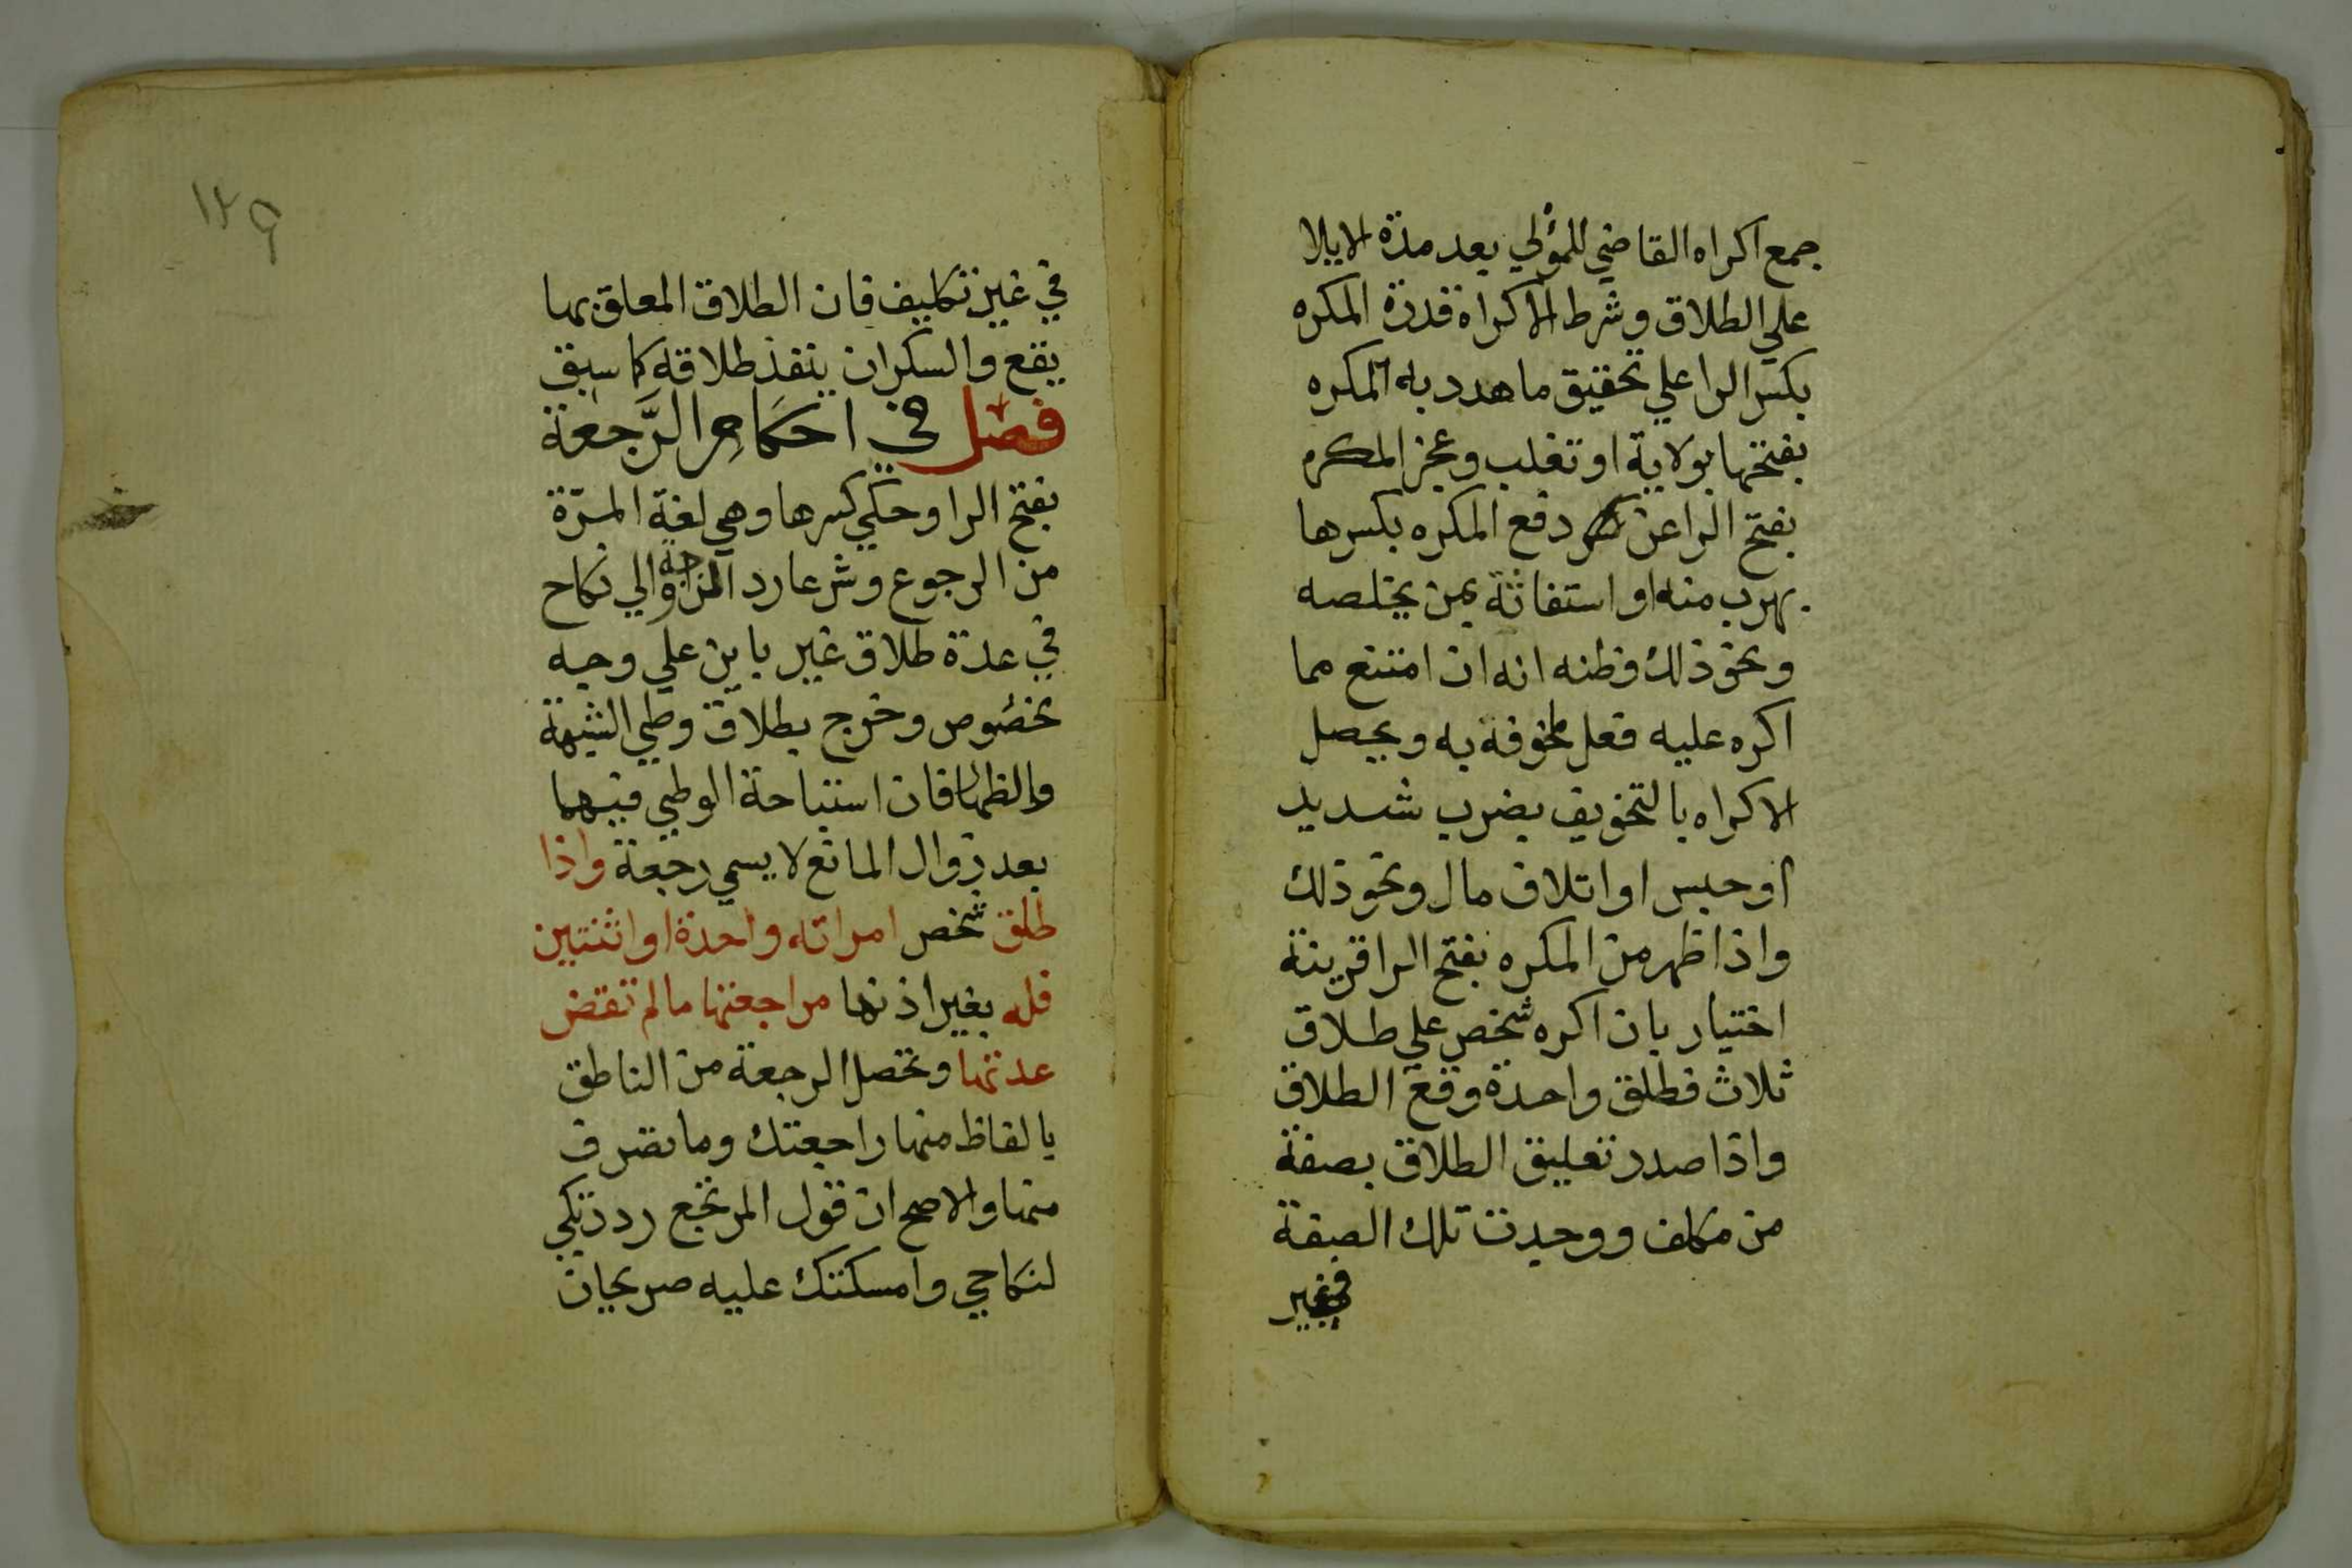 جمع اكراه القاضي للمؤلي بعد مدة الايلا
علي الطلاق وشرط الاكراه قدرة المكره
بكسر الرا علي تحقيق ما هدد به المكره
بفتحها بولاية او تغلب وعجز المكره
بفتح الرا عن دفع المكره بكسرها
بهرب منه او استغاثة بمن يخلصه
ونحو ذلك وظنه انه ان امتنع مما
اكره عليه فعل مخوفه به ويحصل
الاكراه بالتخويف بضرب شديد
او حبس او اتلاف مال ونحو ذلك
واذا ظهر من المكره بفتح الرا قرينة
اختيار بان اكره شخص علي طلاق
ثلاث فطلق واحدة وقع الطلاق
واذا صدر تعليق الطلاق بصفة
من مكلف ووجدت تلك الصفة
في غير
١٢٩
في غير تكليف فان الطلاق المعلق بها
يقع والسكران ينفذ طلاقه كما سبق
فصل في احكام الرَّجعة
بفتح الرا وحكي كسرها وهي لغة المرّة
من الرجوع وشرعا رد الزوجة الي نكاح
في عدة طلاق غير باين علي وجه
مخصوص وخرج بطلاق وطي الشبهة
والظهار فان استباحة الوطي فيهما
بعد زوال المانع لا يسمي رجعة واذا
طلق شخص امراته واحدة او اثنتين
فله بغير اذنها مراجعتها ما لم تنقض
عدتها وتحصل الرجعة من الناطق
بالفاظ منها راجعتك وما تصرف
منها والاصح ان قول المرتجع رددتكي
لنكاحي وامسكتك عليه صريحان